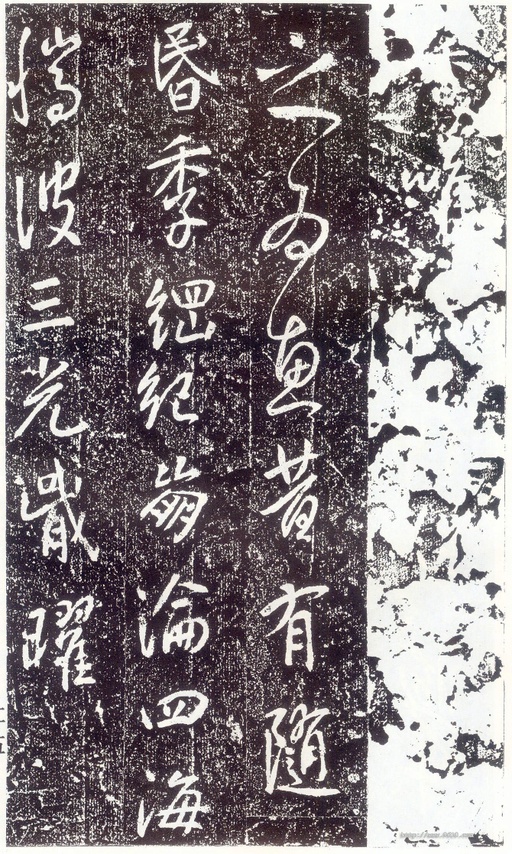 之為惠昔有隨
昬季綱紀崩淪四海
騰波三光戢曜